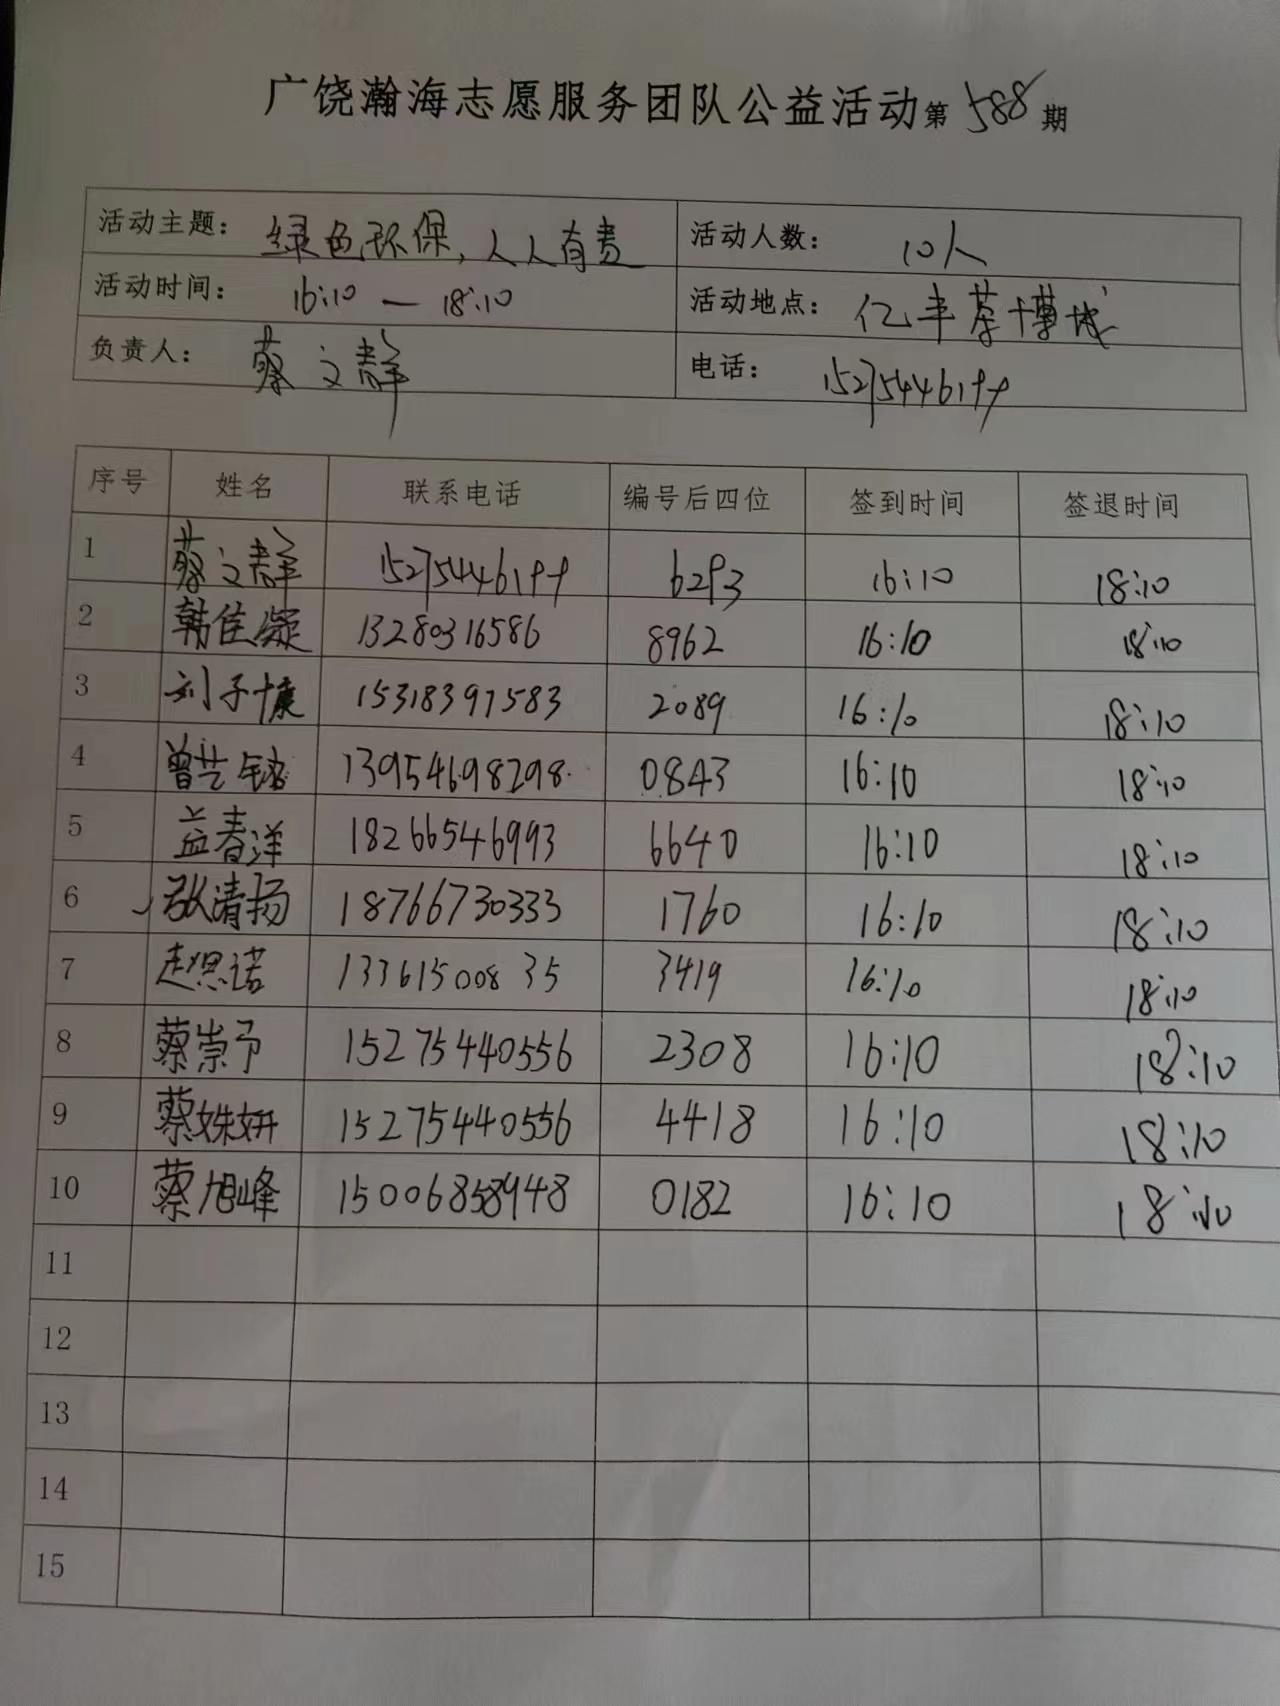 广饶瀚海志愿服务团队公益活动第588期
活动主题： 绿色环保，人人有责 活动人数： 10人
活动时间： 16:10 — 18:10 活动地点： 亿丰茶博城
负责人： 蔡文群 电话： 15275446199
序号 姓名 联系电话 编号后四位 签到时间 签退时间
1 蔡文群 15275446199 6293 16:10 18:10
2 韩佳凝 13280316586 8962 16:10 18:10
3 刘子慷 15318397583 2089 16:10 18:10
4 曾艺 13954698298 0843 16:10 18:10
5 益春洋 18266546993 6640 16:10 18:10
6 张清扬 18766730333 1760 16:10 18:10
7 赵思诺 13361500835 3419 16:10 18:10
8 蔡崇予 15275440556 2308 16:10 18:10
9 蔡姝妍 15275440556 4418 16:10 18:10
10 蔡旭峰 15006858948 0182 16:10 18:10
11
12
13
14
15